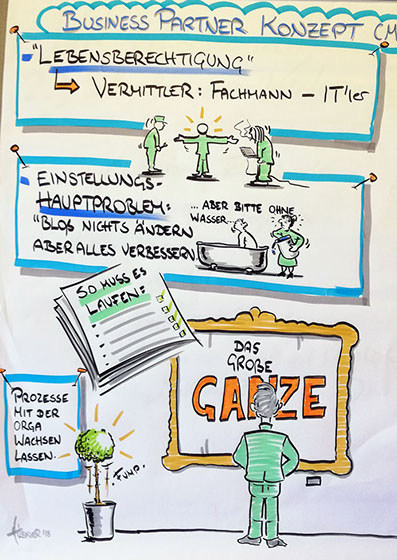 BUSINESS PARTNER KONZEPT (M
- "LEBENSBERECHTIGUNG"
VERMITTLER: FACHMANN – IT'ler
- EINSTELLUNGS-
HAUPTPROBLEM:
"BLOß NICHTS ÄNDERN
ABER ALLES VERBESSERN
... ABER BITTE OHNE
WASSER...
SO MUSS ES
LAUFEN:
DAS
GROßE
GANZE
PROZESSE
MIT DER
ORGA
WACHSEN
LASSEN.
FUMP.